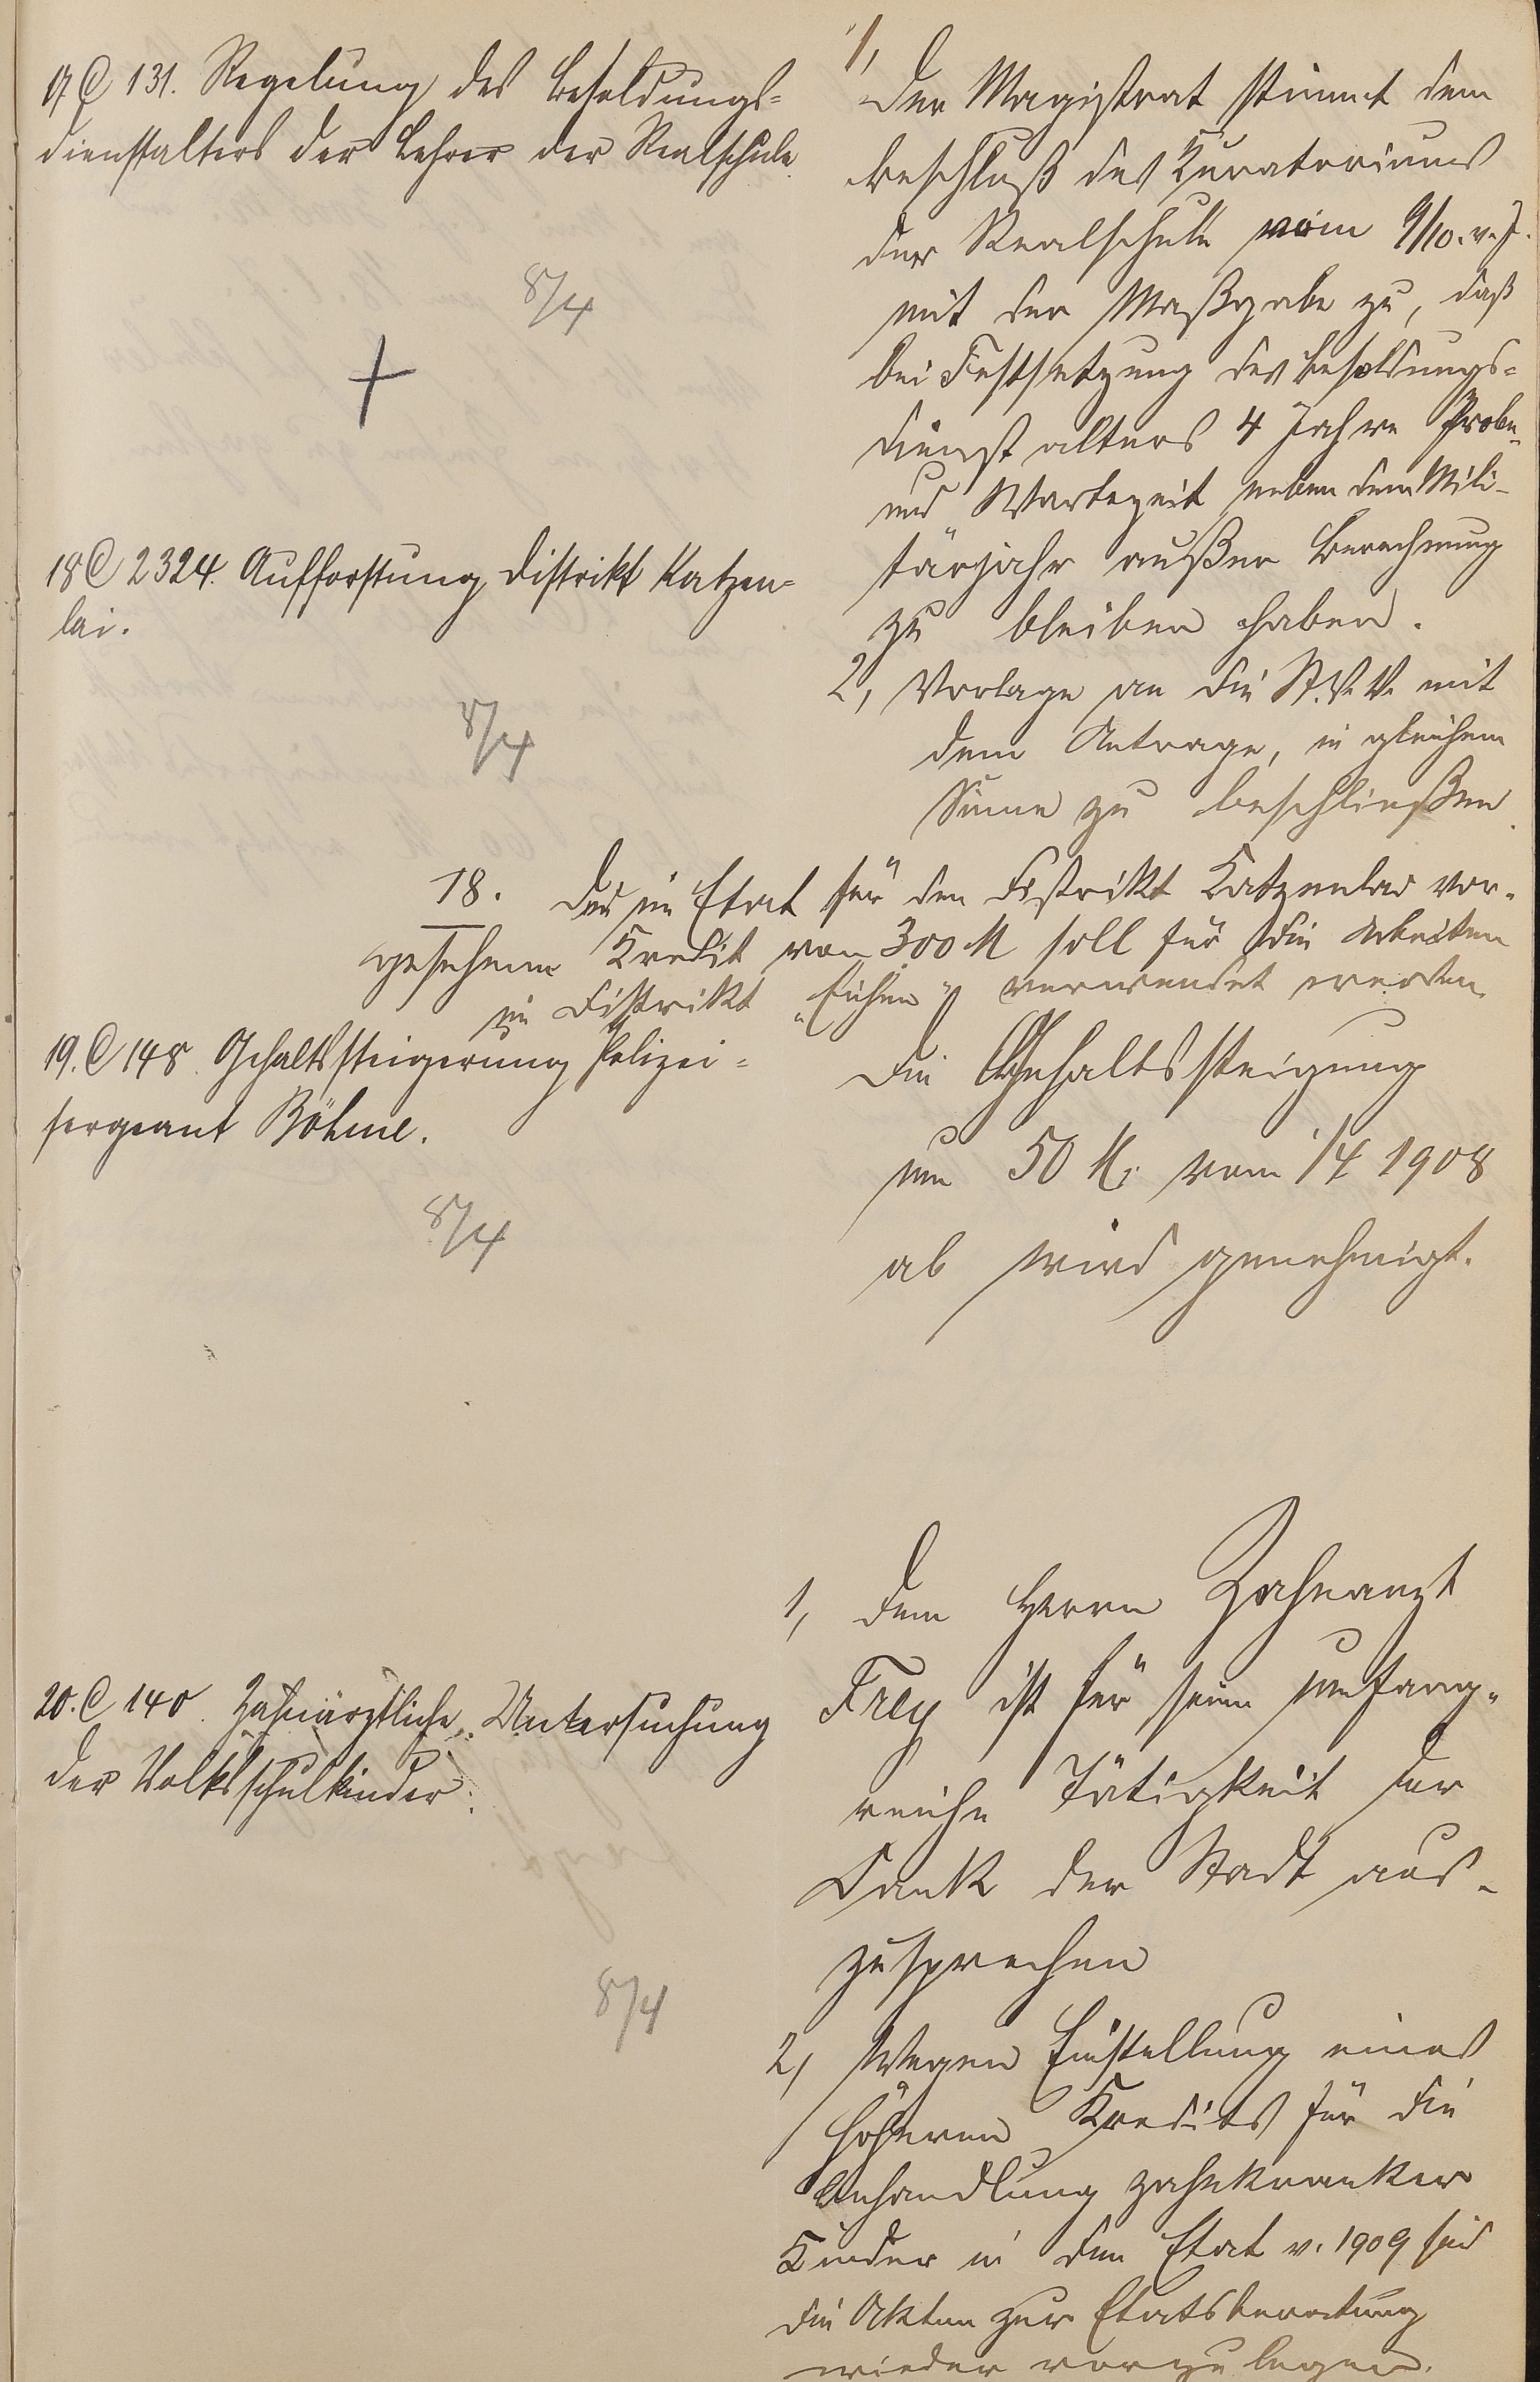 17 C 131. Regelung des Besoldungs-
dienstalters der Lehrer der Realschule.
8/4
1,
Der Magistrat stimmt dem
Beschluß des Kuratoriums
der Realschule vom 9/10. v. J.
mit der Maßgabe zu, daß
bei Festsetzung des Besoldungs-
dienstalters 4 Jahre Probe-
und Wartezeit neben dem Mili-
tärjahr außer Berechnung
zu bleiben haben.
2, Vorlage an die St. V. V. mit
dem Antrage, in gleichem
Sinne zu beschließen.
18 C 2324. Aufforstung Distrikt Katzen-
lai.
8/4
18. Der im Etat für den Distrikt Katzenlai vor-
gesehene Kredit von 300 M soll für die Arbeiten
im Distrikt „Eichen“ verwendet werden.
19. C 148. Gehaltssteigerung Polizei-
sergeant Böhme.
8/4
Die Gehaltssteigung
um 50 M. vom 1/4 1908
ab wird genehmigt.
20. C 140. Zahnärztliche Untersuchung
der Volksschulkinder.
8/4
1, Dem Herrn Zahnarzt
Frey ist für seine umfang-
reiche Tätigkeit der
Dank der Stadt aus-
zusprechen
2, Wegen Einstellung eines
höheren Kredits für die
Behandlung zahnkranker
Kinder in den Etat v. 1909 sind
die Akten zur Etatsberatung
wieder vorzulegen.